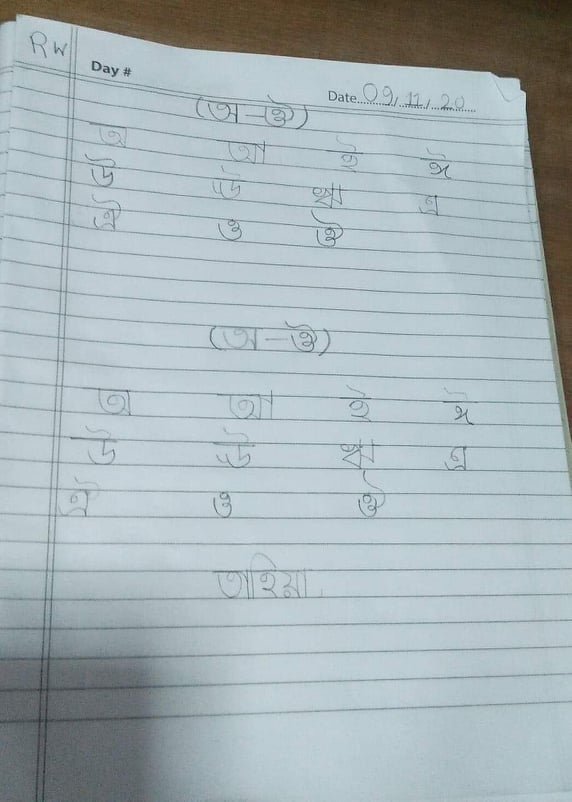 RW
Day #
Date 09/11/20
(অ-ঔ)
অ আ ই ঈ
উ ঊ ঋ এ
ঐ ও ঔ
(অ-ঔ)
অ আ ই ঈ
উ ঊ ঋ এ
ঐ ও ঔ
তাহিয়া.